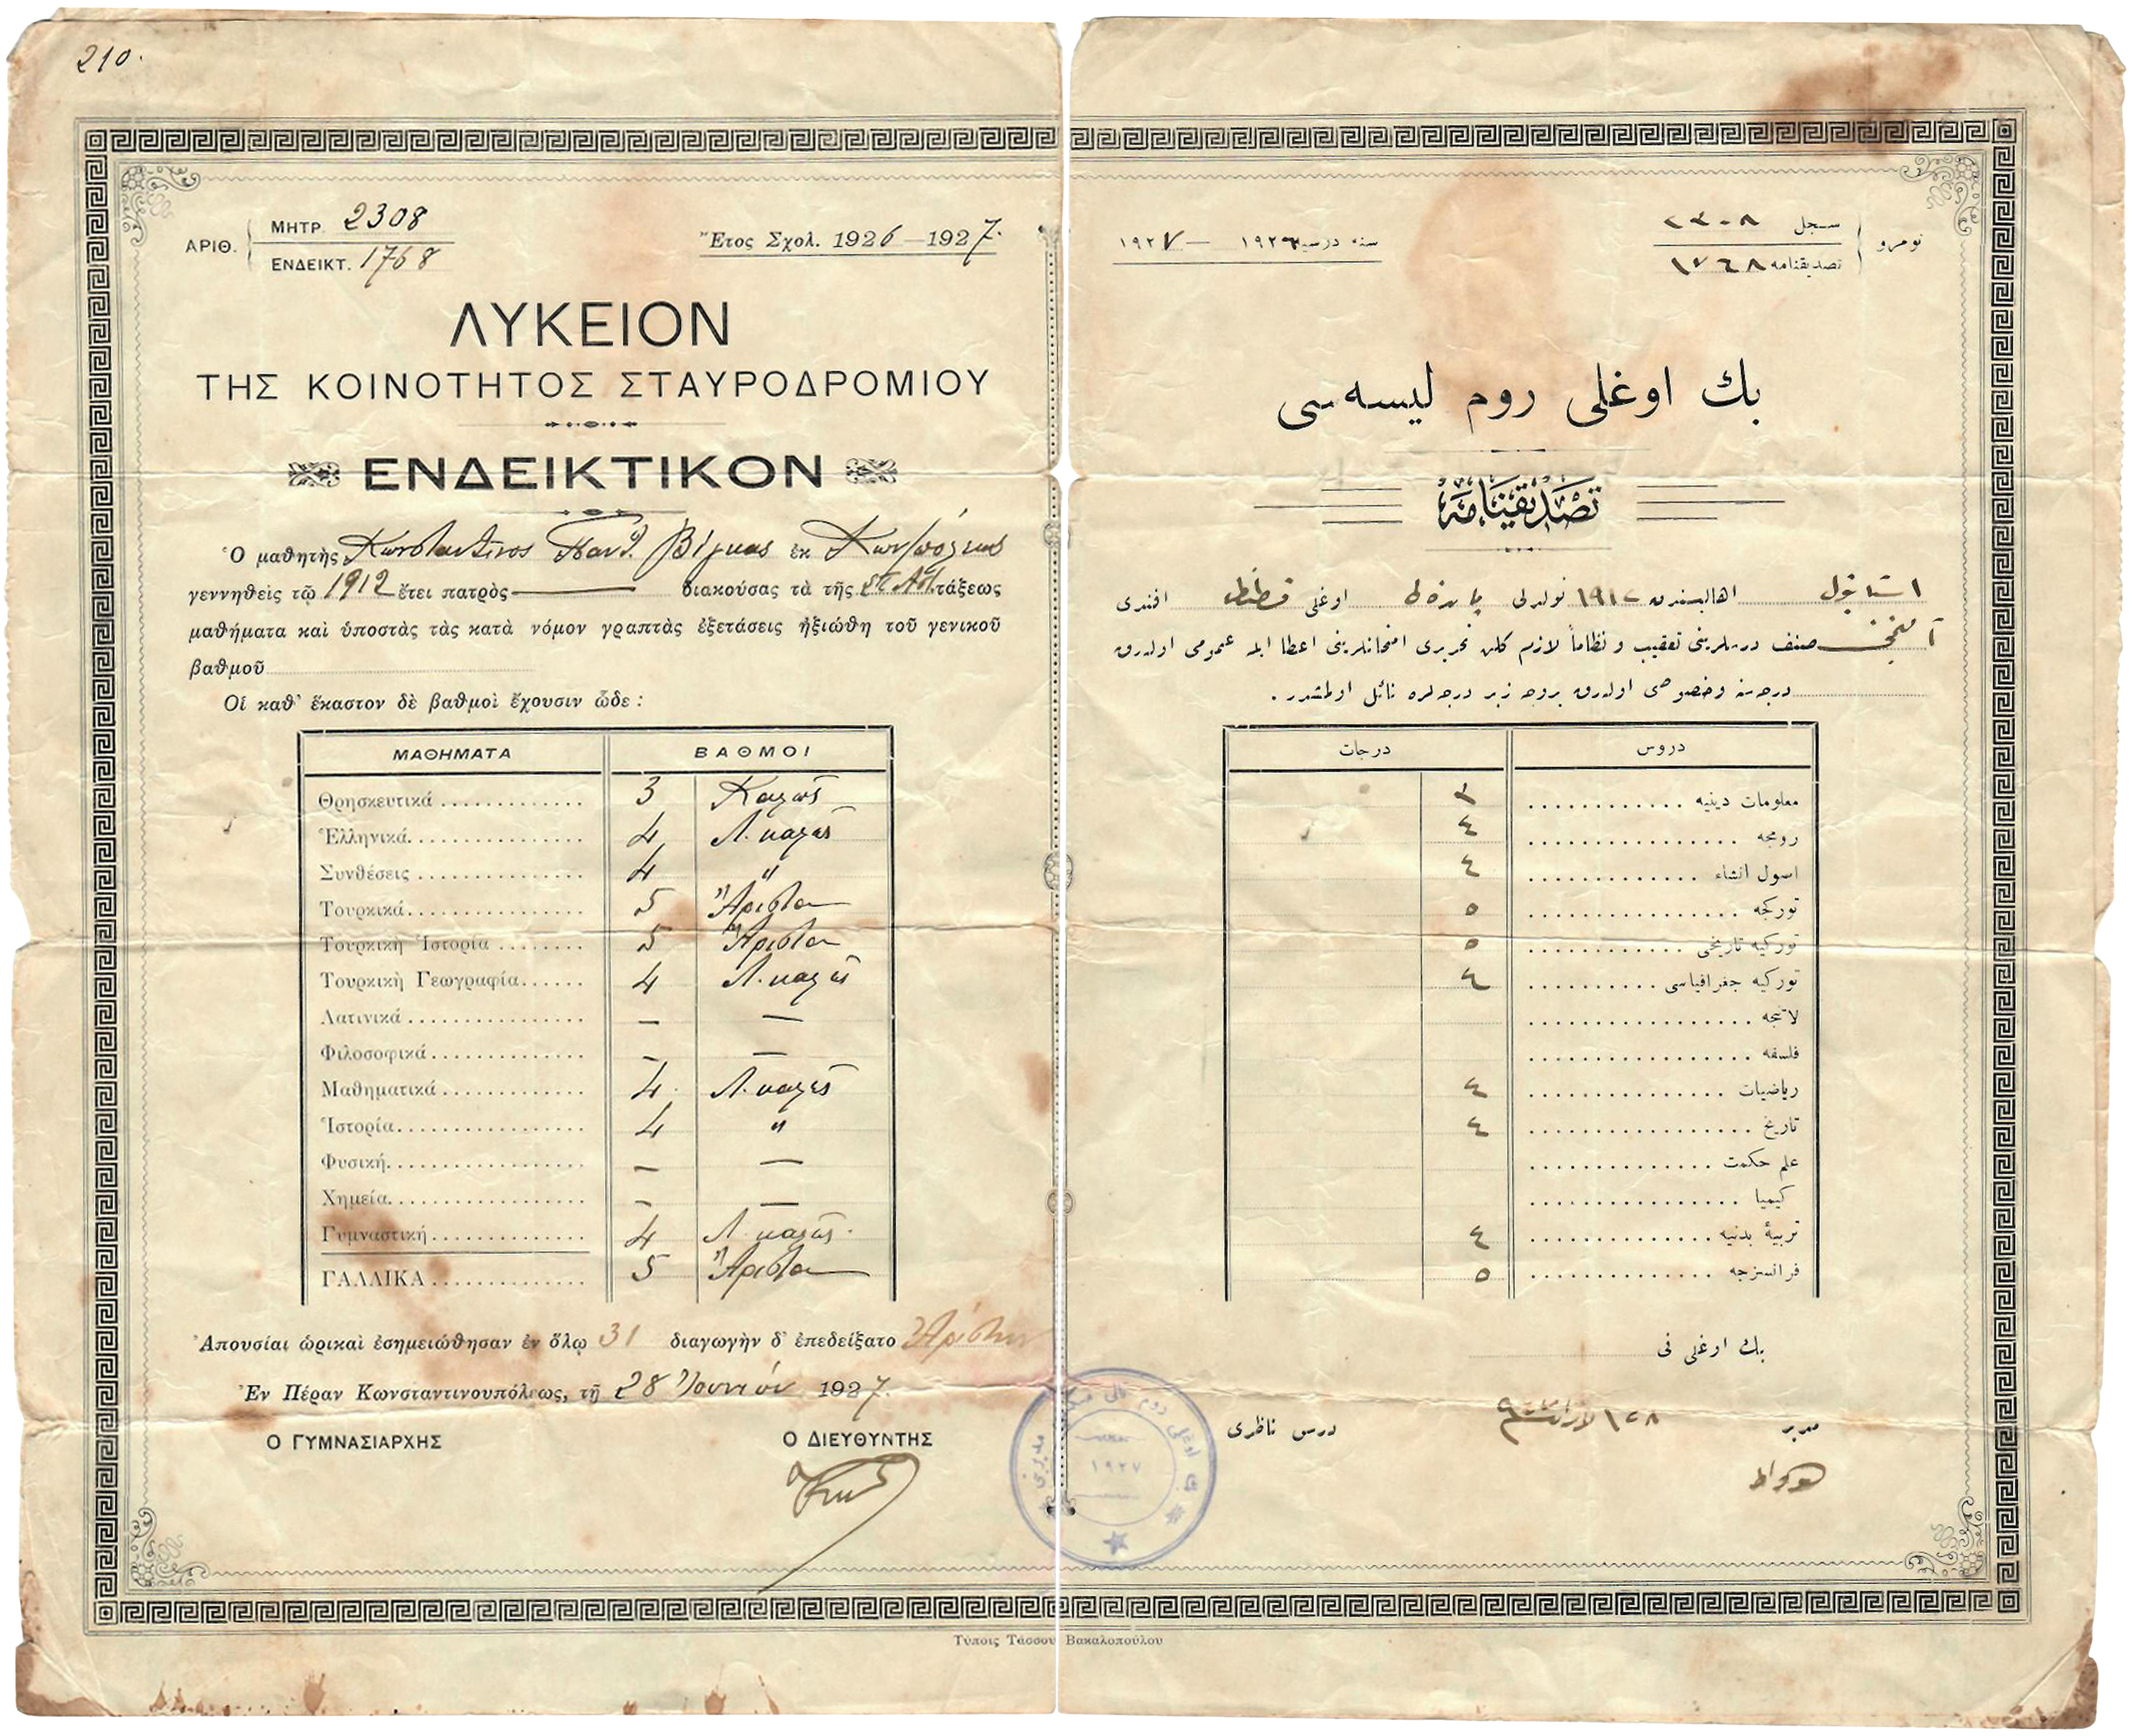 210.
ΑΡΙΘ. ΜΗΤΡ. 2308
ΕΝΔΕΙΚΤ. 1768
Ἔτος Σχολ. 1926 – 1927.
ΛΥΚΕΙΟΝ
ΤΗΣ ΚΟΙΝΟΤΗΤΟΣ ΣΤΑΥΡΟΔΡΟΜΙΟΥ
ΕΝΔΕΙΚΤΙΚΟΝ
Ὁ μαθητὴς Κωνσταντῖνος Παντ. Βίγκας ἐκ Κων/πόλεως
γεννηθεὶς τῷ 1912 ἔτει πατρὸς — διακούσας τὰ τῆς τάξεως
μαθήματα καὶ ὑποστὰς τὰς κατὰ νόμον γραπτὰς ἐξετάσεις ἠξιώθη τοῦ γενικοῦ
βαθμοῦ
Οἱ καθ' ἕκαστον δὲ βαθμοὶ ἔχουσιν ὧδε :
ΜΑΘΗΜΑΤΑ ΒΑΘΜΟΙ
Θρησκευτικά 3 Καλῶς
Ἑλληνικά 4 Λ. καλῶς
Συνθέσεις 4 "
Τουρκικά 5 Ἄριστα
Τουρκικὴ Ἱστορία 5 Ἄριστα
Τουρκικὴ Γεωγραφία 4 Λ. καλῶς
Λατινικά — —
Φιλοσοφικά — —
Μαθηματικά 4 Λ. καλῶς
Ἱστορία 4 "
Φυσική — —
Χημεία — —
Γυμναστική 4 Λ. καλῶς.
ΓΑΛΛΙΚΑ 5 Ἄριστα
Ἀπουσίαι ὡρικαὶ ἐσημειώθησαν ἐν ὅλῳ 31 διαγωγὴν δ' ἐπεδείξατο Ἀρίστην
Ἐν Πέραν Κωνσταντινουπόλεως, τῇ 28 Ἰουνίου 1927.
Ο ΓΥΜΝΑΣΙΑΡΧΗΣ Ο ΔΙΕΥΘΥΝΤΗΣ
نومرو سجل ٢٣٠٨
تصديقنامه ١٧٦٨
سنۀ درسيه ١٩٢٦ — ١٩٢٧
بك اوغلى روم ليسه‌سى
تصديقنامه
استانبول اهاليسندن ١٩١٢ تولدلى اوغلى افندى
صنف درسلرينى تعقيب و نظاماً لازم كلن تحريرى امتحانلرينى اعطا ايله عمومى اولەرق
درجه‌سنه وخصوصى اولەرق بروجه زير درجه‌لره نائل اولمشدر .
دروس درجات
معلومات دينيه ٣
رومجه ٤
اصول انشاء ٤
توركجه ٥
توركيه تاريخى ٥
توركيه جغرافياسى ٤
لاتنجه
فلسفه
رياضيات ٤
تاريخ ٤
علم حكمت
كيميا
تربيۀ بدنيه ٤
فرانسزجه ٥
بك اوغلى فى
مدير درس ناظرى
١٩٢٧
Τύποις Τάσσου Βακαλοπούλου